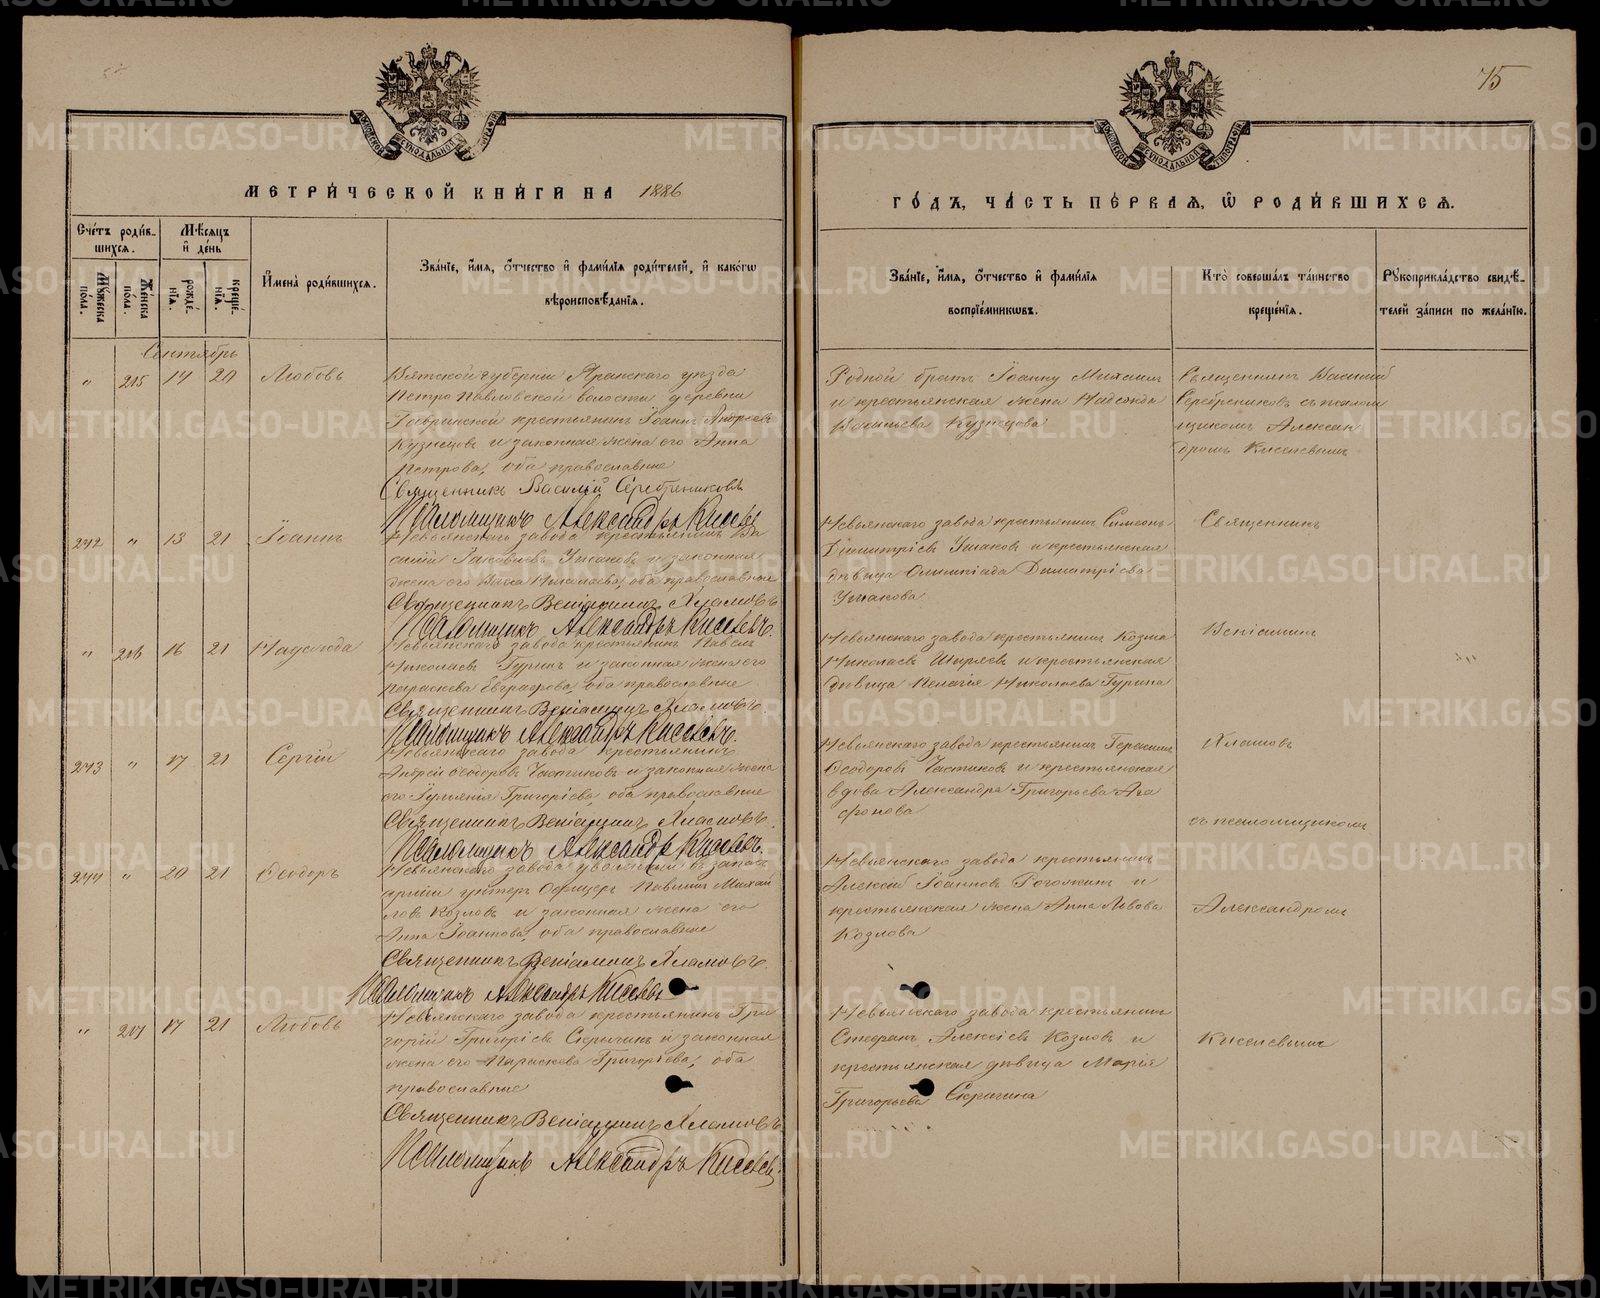 75
МЕТРИ́ЧЕСКОЙ КНИ́ГИ НА 1886
ГО́ДЪ, ЧА́СТЬ ПЕ́РВАѦ, Ѡ РОДИ́ВШИХСѦ.
Сче́тъ роди́в-
шихся.
Мꙋ́жеска по́ла.
Же́нска по́ла.
Мѣ́сяцъ и́ де́нь
рожде́нїя.
креще́нїя.
И҆мена̀ роди́вшихся.
Зва́нїе, и҆́мя, ѻ҆́тчество и҆ фами́лїя роди́телей, и҆ како́гѡ
вѣроисповѣ́данїя.
Зва́нїе, и҆́мя, ѻ҆́тчество и҆ фами́лїя
воспрїе́мникѡвъ.
Кто̀ соверша́лъ та́инство
креще́нїя.
Рꙋкоприкла́дство свидѣ́-
телей за́писи по жела́нїю.
Сентябрь
" 215 14 20 Любовь
Вятской губернии Яранского уѣзда
Петро Павловской волости деревни
крестьянинъ Іоаннъ Андреевъ
Кузнецовъ и законная жена его Анна
Петрова, оба православные
Священникъ Василій Серебренниковъ
Псаломщикъ Александръ Киселевъ
Родной братъ Іоанну Михаилъ
и крестьянская жена Надежда
Васильева Кузнецова
Священникъ Василий
Серебрениковъ съ псалом
щикомъ Алексан
дромъ Киселевымъ
242 " 13 21 Іоаннъ
Невьянскаго завода крестьянинъ Ва
силій Іаковлевъ Ушаковъ и законная
жена его Васса Николаева, оба православные
Священникъ Веніаминъ Хламовъ
Псаломщикъ Александръ Киселевъ.
Невьянскаго завода крестьянинъ Симеонъ
Димитріевъ Ушаковъ и крестьянская
дѣвица Олимпіада Димитріева
Ушакова
Священникъ
" 216 16 21 Надежда
Невьянскаго завода крестьянинъ Павелъ
Николаевъ Гуринъ и законная жена его
Параскева Евграфова, оба православные
Священникъ Веніаминъ Хламовъ
Псаломщикъ Александръ Киселевъ.
Невьянскаго завода крестьянинъ Козма
Николаевъ Ширяевъ и крестьянская
дѣвица Пелагія Николаева Гурина
Веніаминъ
243 " 17 21 Сергій
Невьянскаго завода крестьянинъ
Андрей Ѳеодоровъ Частиковъ и законная жена
его Іуліанія Григоріева, оба православные
Священникъ Веніаминъ Хламовъ.
Псаломщикъ Александръ Киселевъ.
Невьянскаго завода крестьянинъ Герасимъ
Ѳеодоровъ Частиковъ и крестьянская
вдова Александра Григорьева Ага
фонова
Хламовъ
съ псаломщикомъ
244 " 20 21 Ѳеодоръ
Невьянскаго завода уволенный въ запасъ
арміи унтеръ Офицеръ Павелъ Михай
ловъ Козловъ и законная жена его
Анна Іоаннова, оба православные
Священникъ Веніаминъ Хламовъ.
Псаломщикъ Александръ Киселевъ
Невьянскаго завода крестьянинъ
Алексѣй Іоанновъ Рогожинъ и
крестьянская жена Анна Львова
Козлова
Александромъ
" 217 17 21 Любовь
Невьянскаго завода крестьянинъ Гри
горій Григоріевъ Скрыгинъ и законная
жена его Параскева Григорьева, оба
православные
Священникъ Веніаминъ Хламовъ
Псаломщикъ Александръ Киселевъ.
Невьянскаго завода крестьянинъ
Стефанъ Алексіевъ Козловъ и
крестьянская дѣвица Марія
Григорьева Скрыгина
Киселевымъ
METRIKI.GASO-URAL.RU